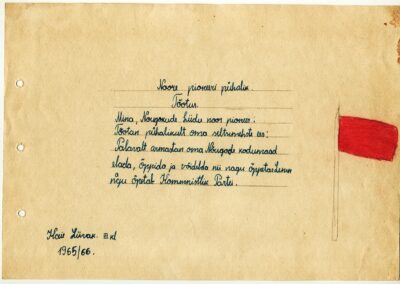 Noore pioneeri pühalik
Tõotus.
Mina, Nõukogude Liidu noor pioneer:
Tõotan pühalikult oma seltsimeeste ees:
Palavalt armastan oma Nõukogude kodumaad
elada, õppida ja võidelda nii nagu õpetas Lenin
nagu õpetab Kommunistlik Partei.
III kl
1965/66.